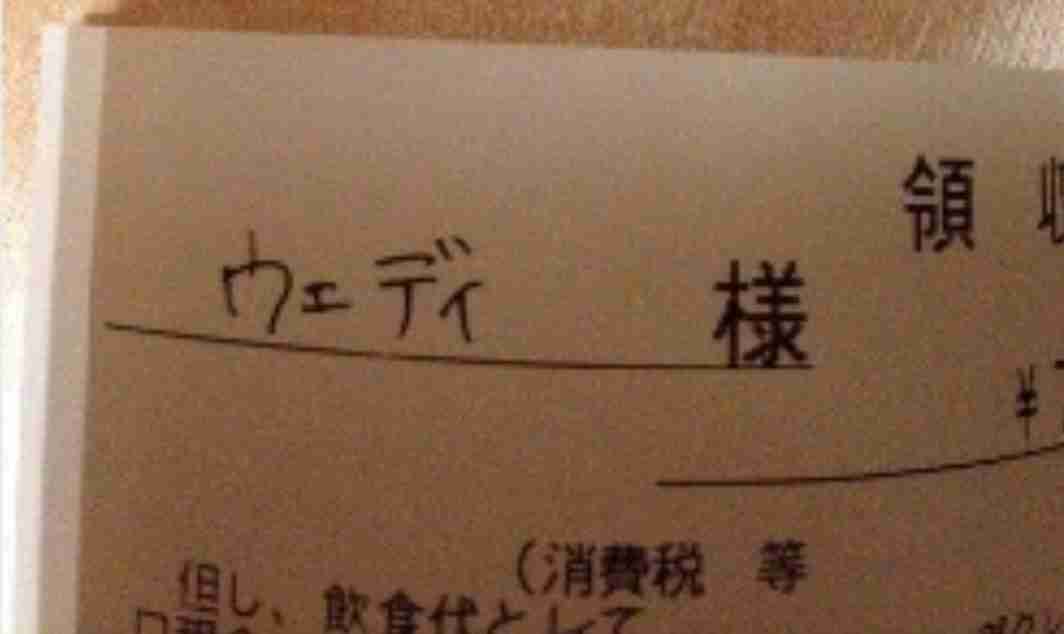 領収
ウェディ 様
¥
(消費税 等
但し、飲食代として